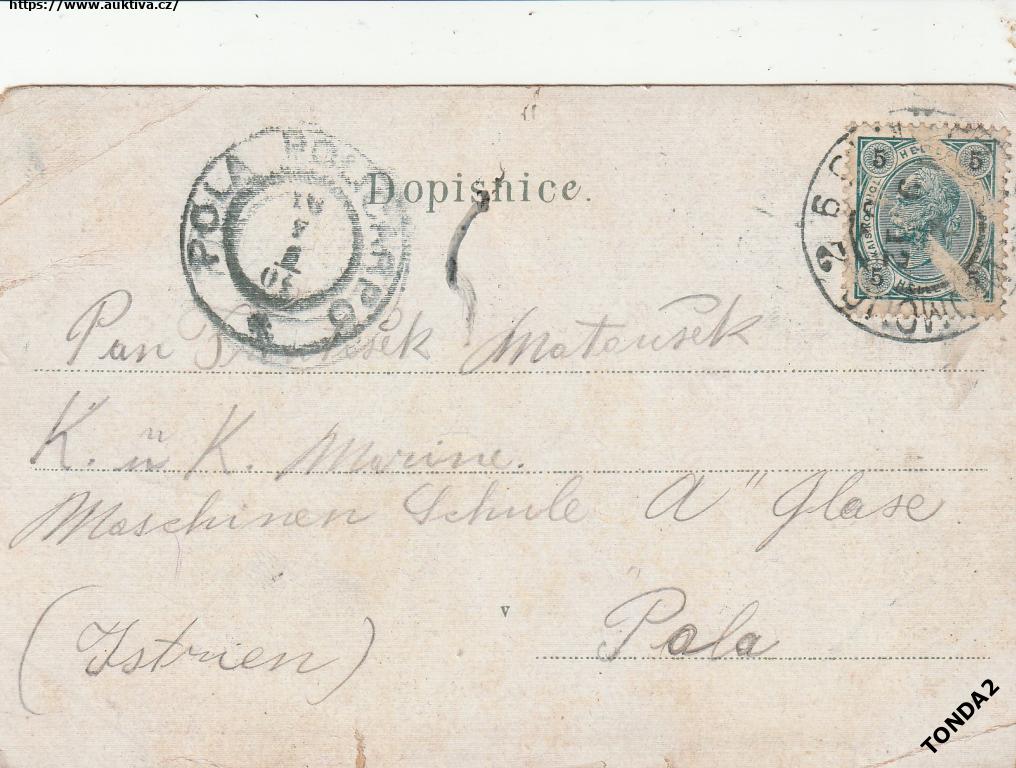 https://www.auktiva.cz/
Dopisnice.
POLA
5 5
5 5
26
30
5
Pan František Matoušek
K. u K. Marine.
Maschinen Schule A" Glase
v Pola
(Istrien)
TONDA2